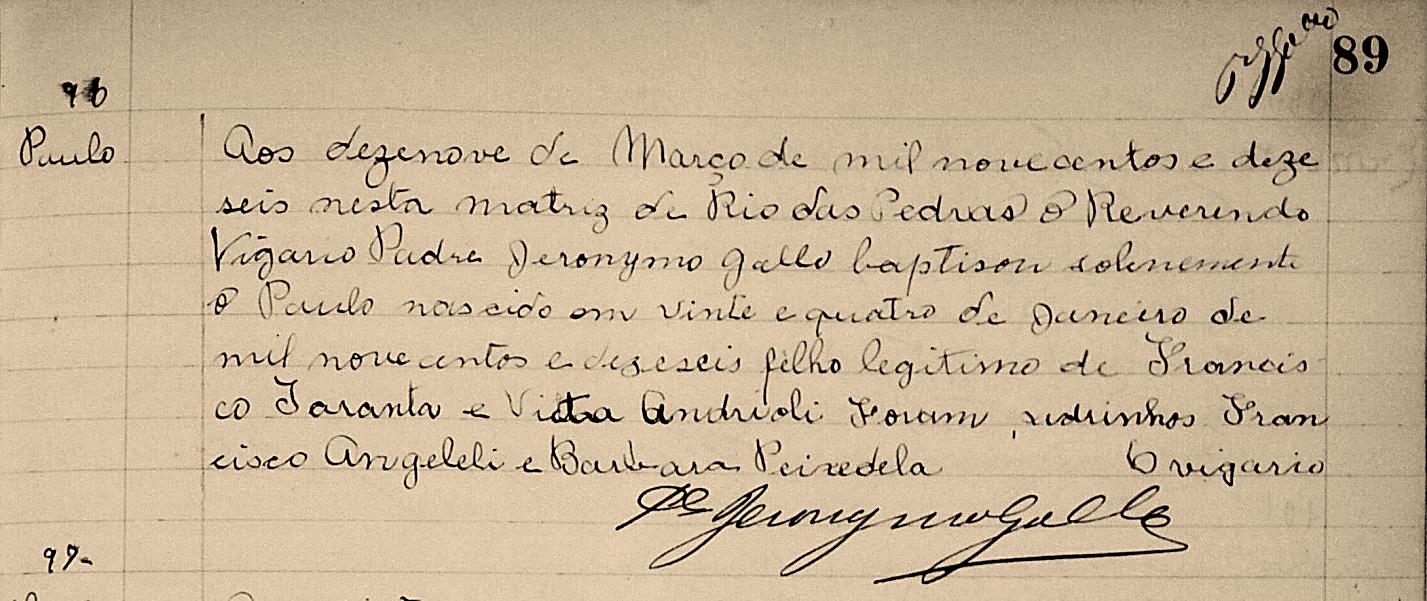 89
96
Paulo
Aos dezenove de Março de mil novecentos e deze
seis nesta matriz de Rio das Pedras o Reverendo
Vigario Padre Jeronymo Gallo baptisou solenemente
o Paulo nascido em vinte e quatro de Janeiro de
mil novecentos e dezeseis filho legitimo de Francis
co Taranta e Andrioli Foram padrinhos Fran
cisco Angeleli e Barbara Peixedela O vigario
Pe Jeronymo Gallo
97-